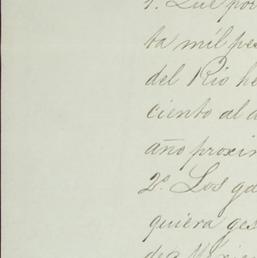 1. Que por
ta mil pes
del Rio he
ciento al a
año proxin
2º Los ga
quiera ges
de México